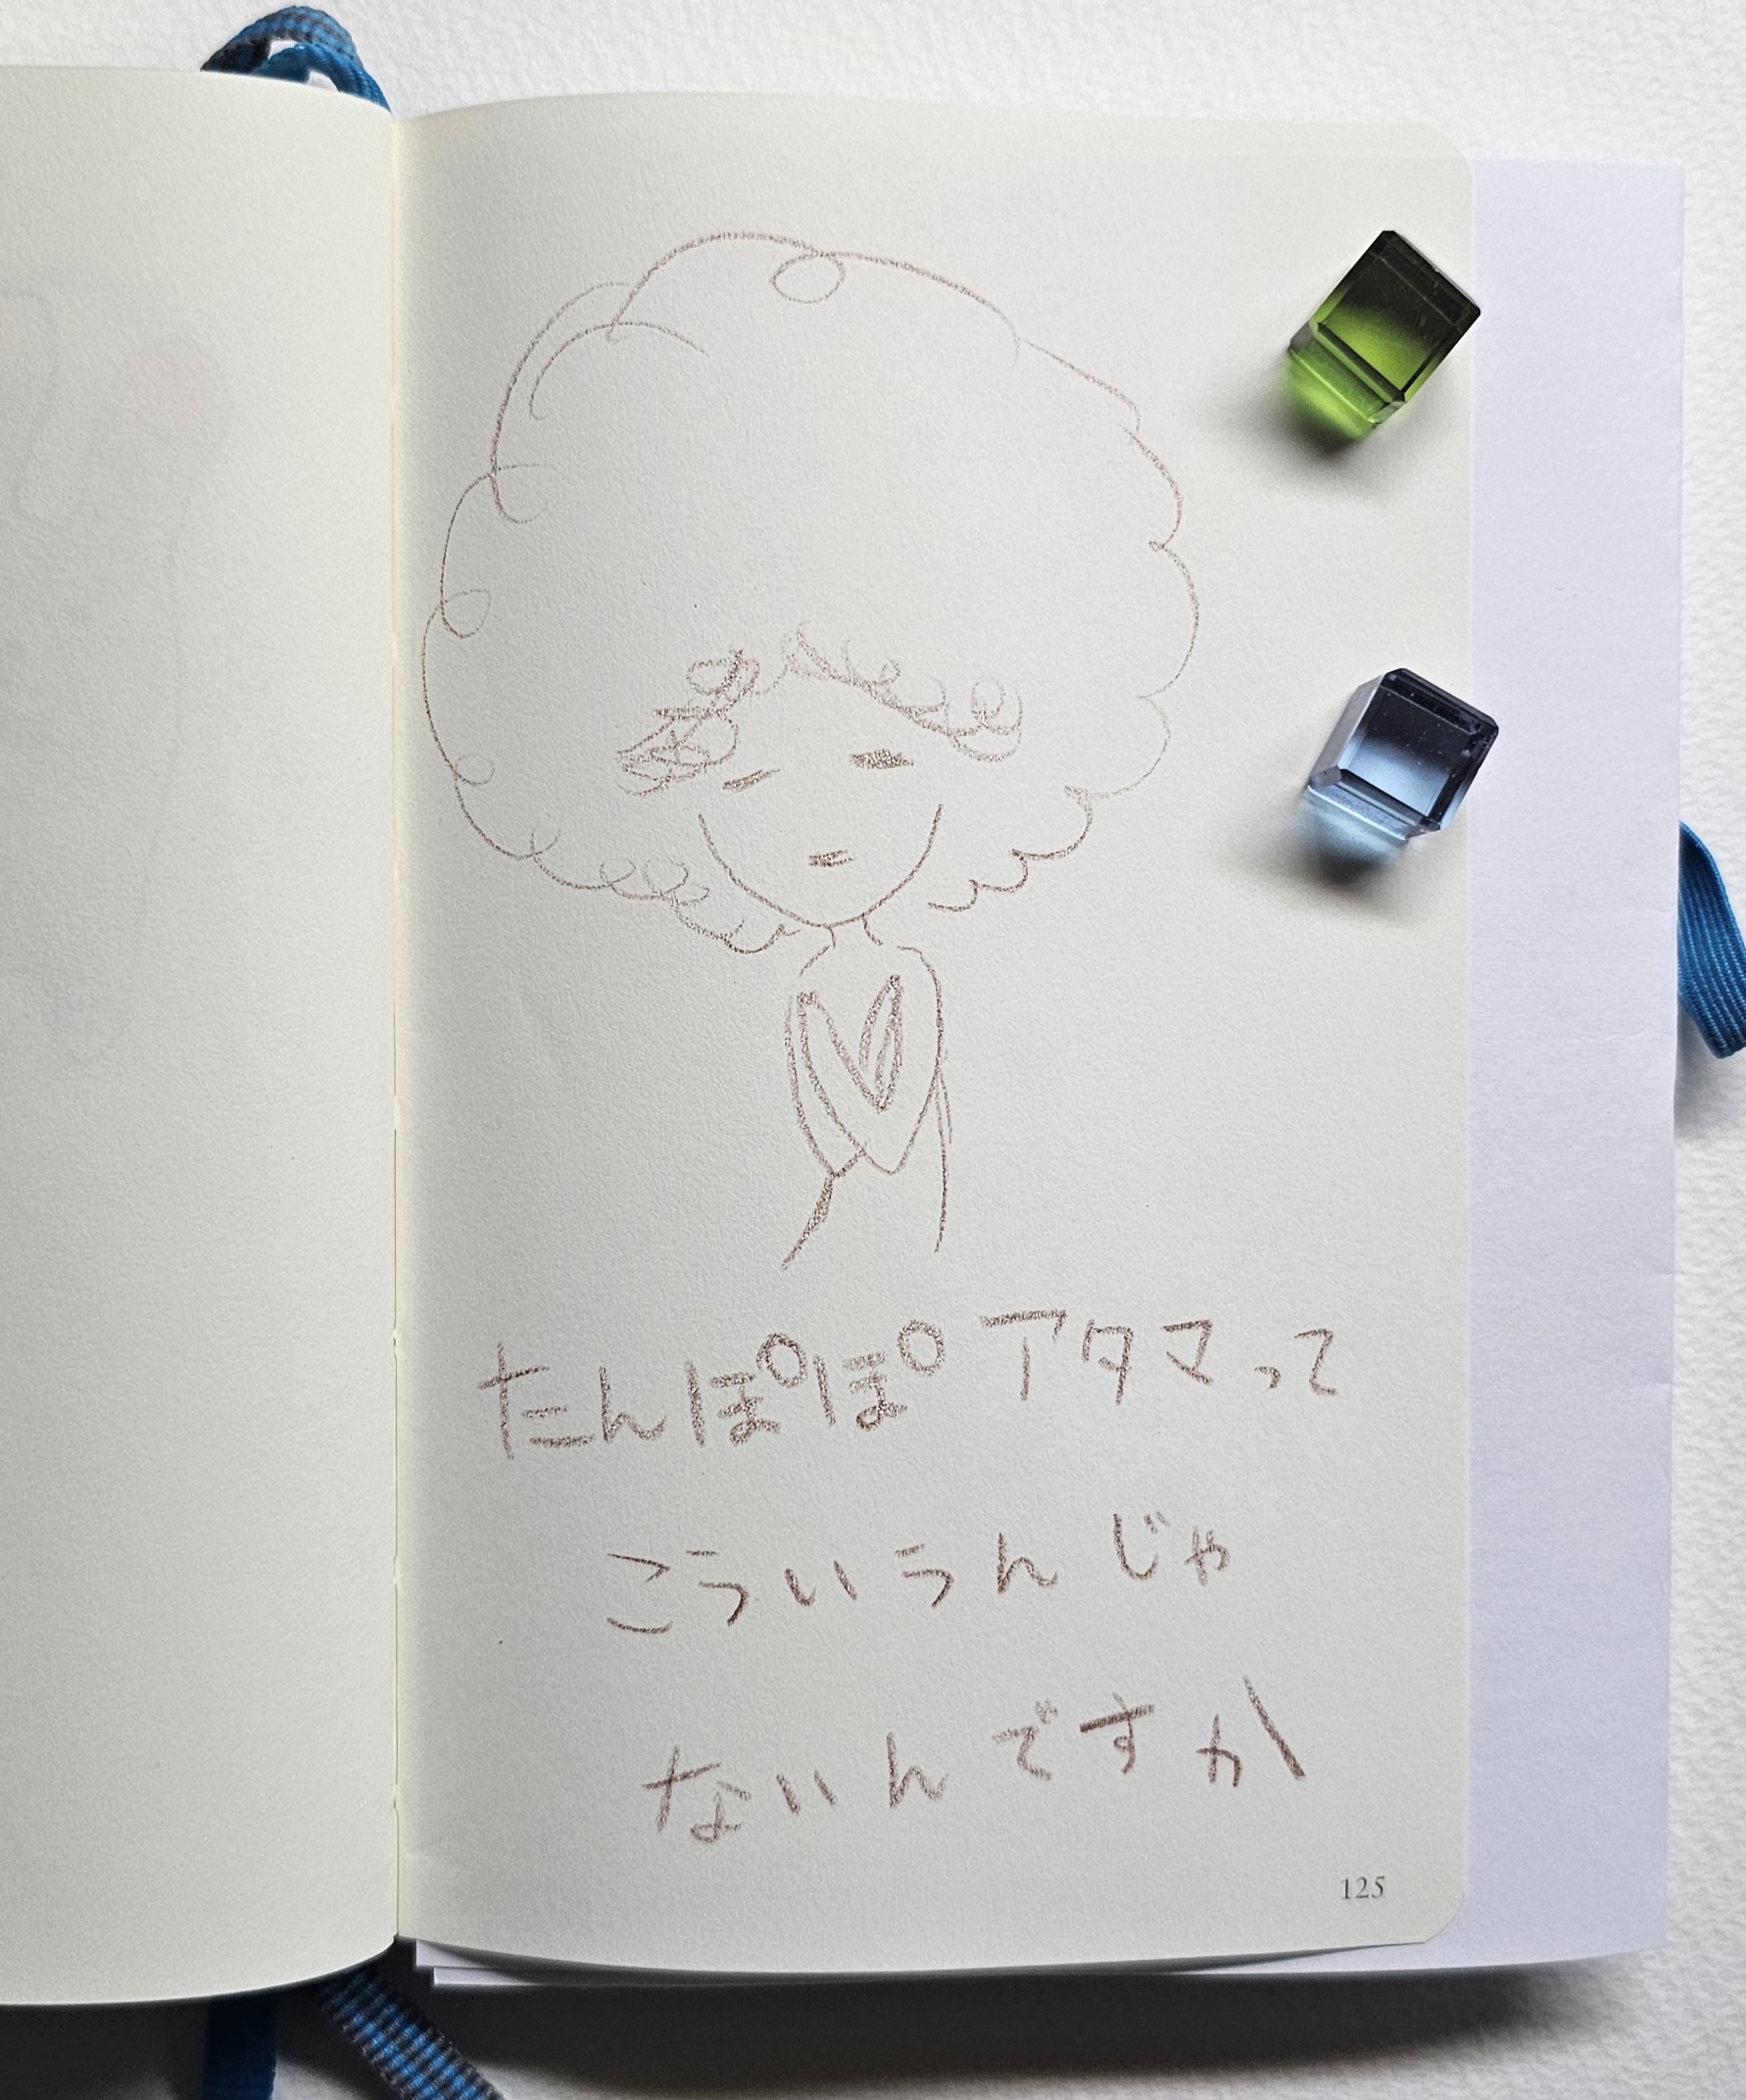 たんぽぽアタマって
こういうんじゃ
ないんですか
125